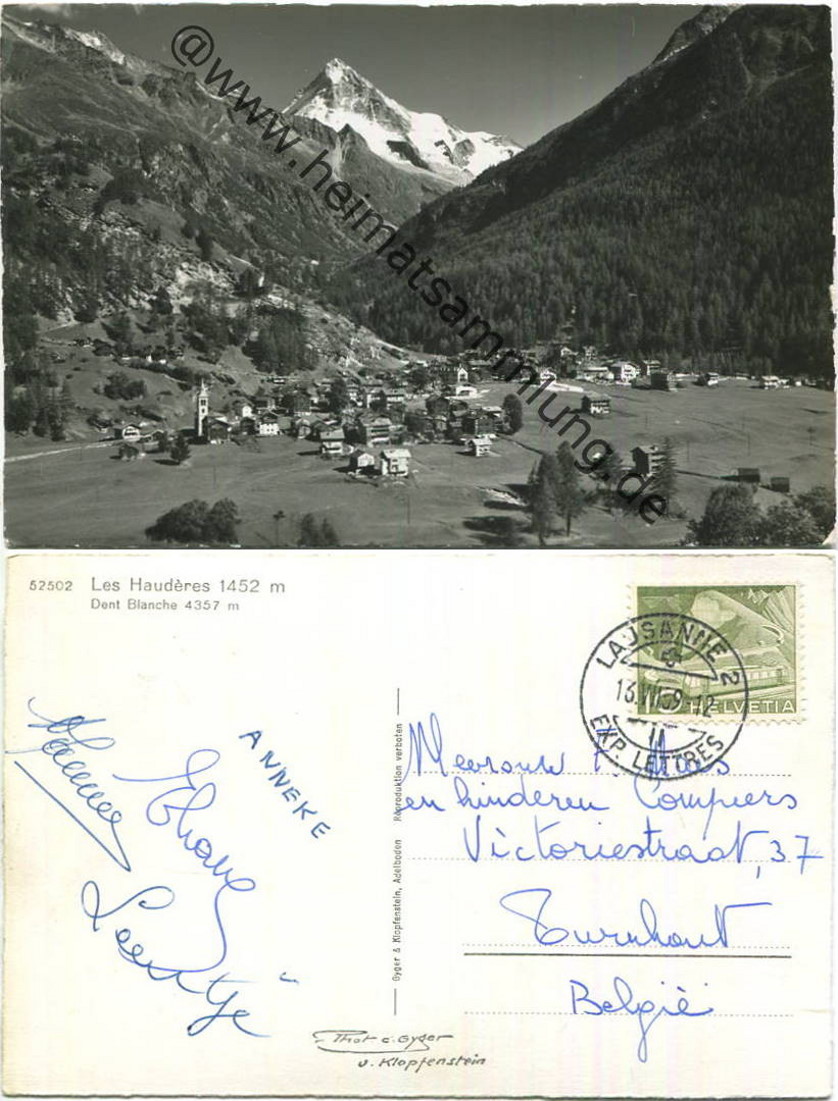 @www.heimatsammlung.de
52502 Les Haudères 1452 m
Dent Blanche 4357 m
LAUSANNE 2
13.VII.59-12
II
EXP. LETTRES
HELVETIA
ANNEKE
Loentje
Gyger & Klopfenstein, Adelboden Reproduktion verboten
Mevrouw
en kinderen Compeers
Victoriestraat, 37
Turnhout
België
Phot c. Gyger
v. Klopfenstein